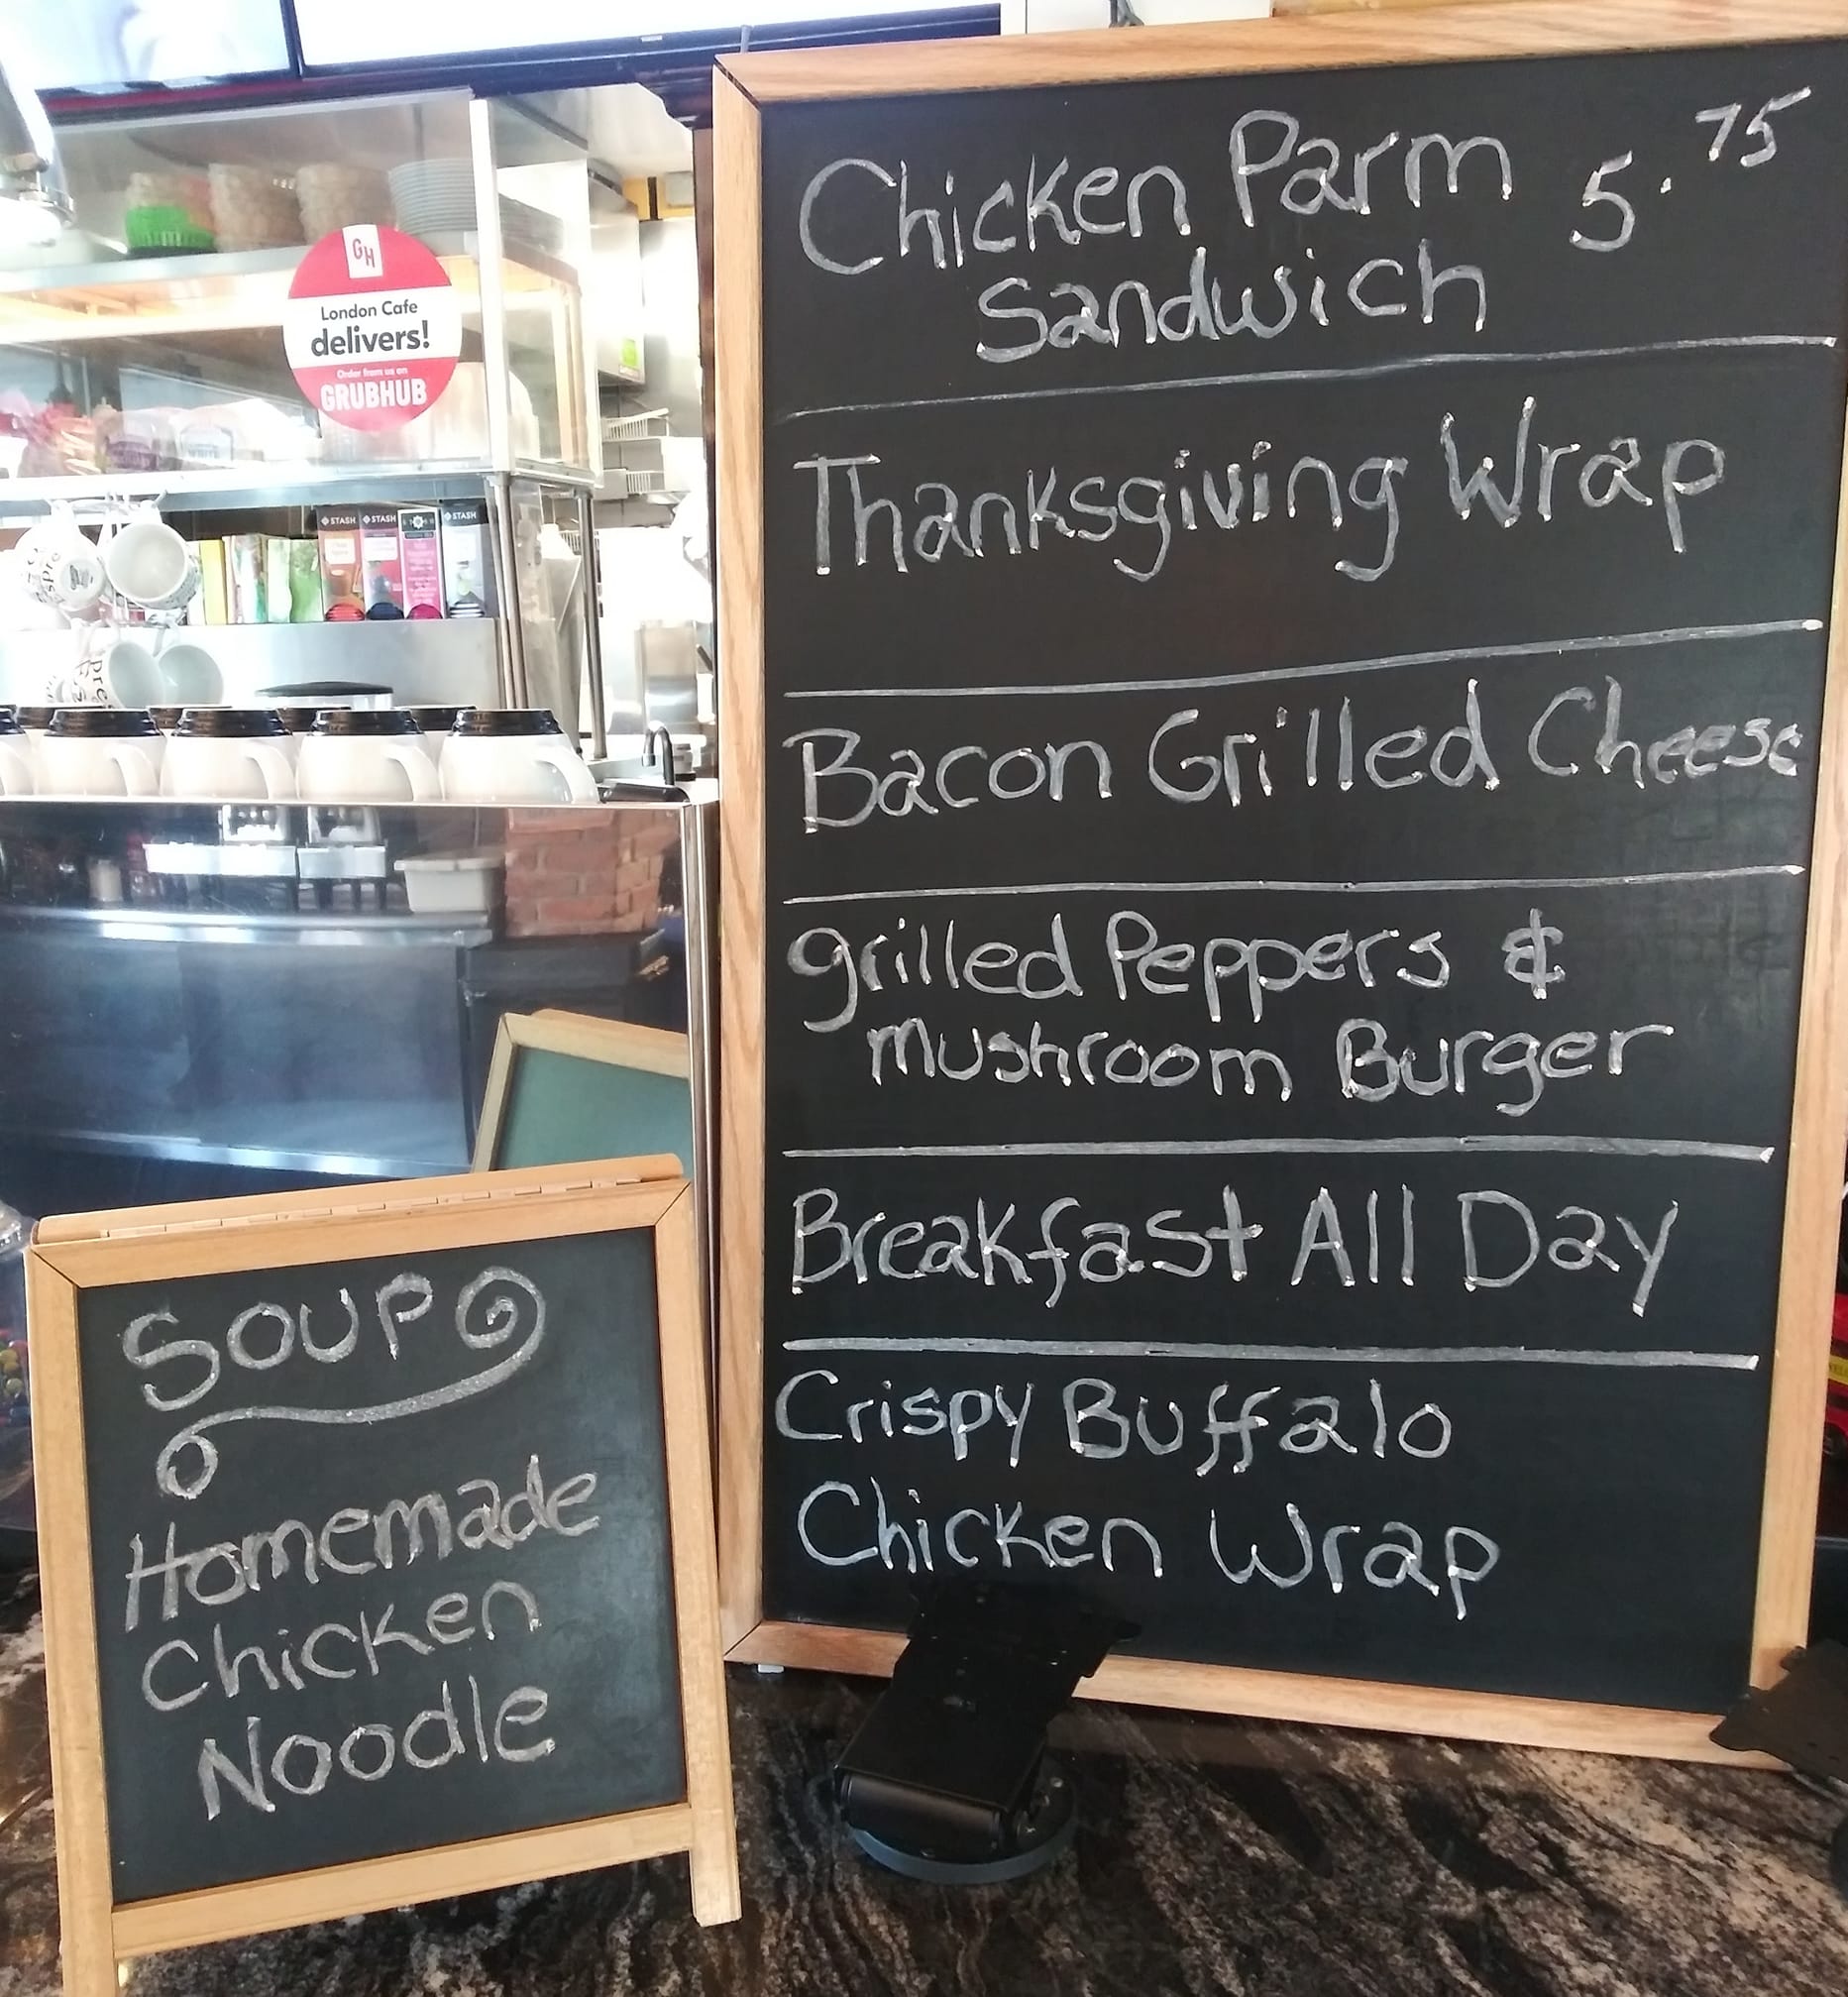 Chicken Parm 5.75
Sandwich
Thanksgiving Wrap
Bacon Grilled Cheese
grilled Peppers &
mushroom Burger
Breakfast All Day
Crispy Buffalo
Chicken Wrap
SOUP
Homemade
Chicken
Noodle
GH
London Cafe
delivers!
Order from us on
GRUBHUB
STASH STASH STASH